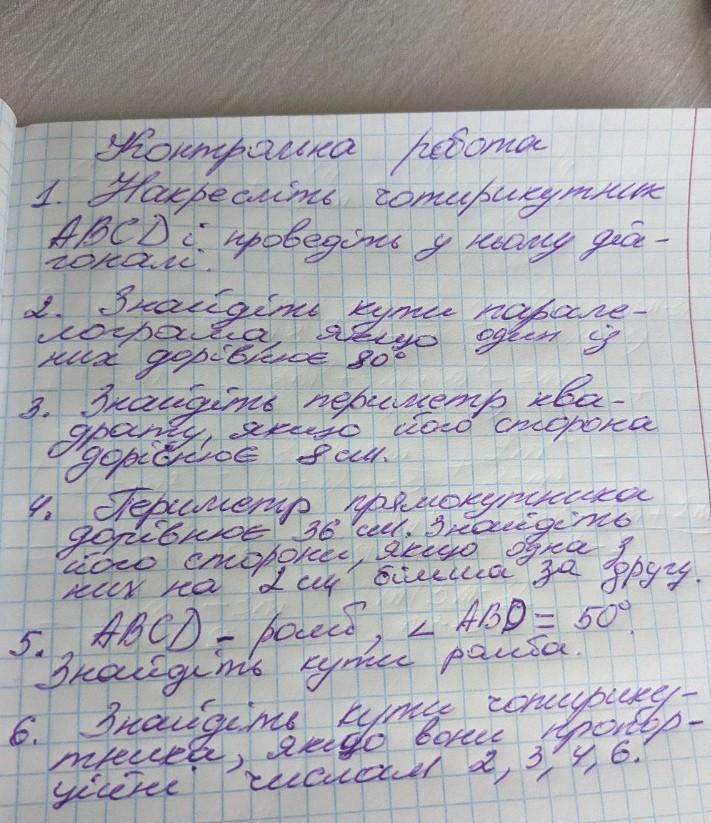 Контрольна робота
1. Накресліть чотирикутник
ABCD і проведіть у ньому діа-
гоналі.
2. Знайдіть кути парале-
лограма, якщо один із
них дорівнює 80°
3. Знайдіть периметр ква-
драту, якщо його сторона
дорівнює 8 см.
4. Периметр прямокутника
дорівнює 36 см. Знайдіть
його сторони, якщо одна з
них на 2 см більша за другу.
5. ABCD - ромб, ∠ ABD = 50°.
Знайдіть кути ромба.
6. Знайдіть кути чотирику-
тника, якщо вони пропор-
ційні числам 2, 3, 4, 6.